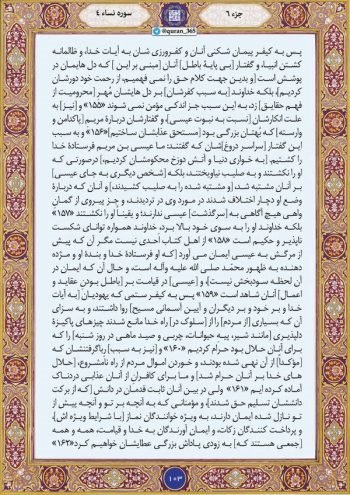 جزء ۶
سوره نساء ۴
@quran_365
پس به کیفر پیمان شکنی آنان و کفرورزی شان به آیات خدا، و ظالمانه
کشتن انبیا، و گفتار [بی پایۀ باطل] آنان [مبنی بر این] که دل هایمان در
پوشش است [و بدین جهت کلام حق را نمی فهمیم، از رحمت خود دورشان
کردیم]، بلکه خداوند [به سبب کفرشان] بر دل هایشان مُهر [محرومیت از
فهم حقایق] زد، به این سبب جز اندکی مؤمن نمی شوند «۱۵۵» و [نیز] به
علت انکارشان [نسبت به نبوت عیسی]، و گفتارشان دربارۀ مریم [پاکدامن و
وارسته] که بُهتان بزرگی بود [مستحق عذابشان ساختیم] «۱۵۶» و به سبب
این گفتار [سراسر دروغ]شان که گفتند: ما عیسی بن مریم فرستادۀ خدا
را کشتیم، [به خواری دنیا و آتش دوزخ محکومشان کردیم]، درصورتی که
او را نکشتند و به صلیب نیاویختند، بلکه [شخص دیگری به جای عیسی]
بر آنان مشتبه شد، [و مشتبه شده را به صلیب کشیدند]، و آنان که دربارۀ
وضع او دچار اختلاف شدند در مورد وی در تردیدند، و جز پیروی از گمانِ
واهی هیچ آگاهی به [سرگذشت] عیسی ندارند؛ و یقیناً او را نکشتند «۱۵۷»
بلکه خداوند او را به سوی خود بالا برد، خداوند همواره توانای شکست
ناپذیر و حکیم است «۱۵۸» از اهل کتاب احدی نیست مگر آن که پیش
از مرگش به عیسی ایمان می آورد [که او فرستادۀ خدا و بندۀ او و مژده
دهنده به ظهور محمّد صلی الله علیه وآله است، و حال آن که ایمان در
آن لحظه سودبخش نیست]، و [عیسی] در قیامت بر [باطل بودن عقاید و
اعمال] آنان شاهد است «۱۵۹» پس به کیفر ستمی که یهودیان [به آیات
خدا و بر خود و بر دیگران و آیین آسمانی مسیح] روا داشتند، و به سزای
آن که بسیاری [از مردم] را از [سلوک در] راه خدا مانع شدند چیزهای پاکیزۀ
دلپذیری [مانند شیر، پیه حیوانات، چربی و صید ماهی در روز شنبه] را که
برای آنان حلال بود حرام کردیم «۱۶۰» و [نیز به سبب] رباگرفتنشان که
[مؤکداً] از آن نهی شده بودند، و خوردن اموال مردم از راه نامشروع، [حلال
های خدا بر آنان حرام شد] و ما برای کافران از آنان عذابی دردناک
آماده کرده ایم «۱۶۱» ولی در بین آنان ثابت قدمان در دانش [که از برکت
دانششان تسلیم حق شدند]، و مؤمنانی که به آنچه بر تو و آنچه پیش از
تو نازل شده ایمان دارند، به ویژه خوانندگان نماز [با شرایط ویژه اش]،
و پرداخت کنندگان زکات، و ایمان آورندگان به خدا و قیامت، همه و همه
[جمعی هستند که] به زودی پاداش بزرگی عطایشان خواهیم کرد «۱۶۲»
۱۰۳